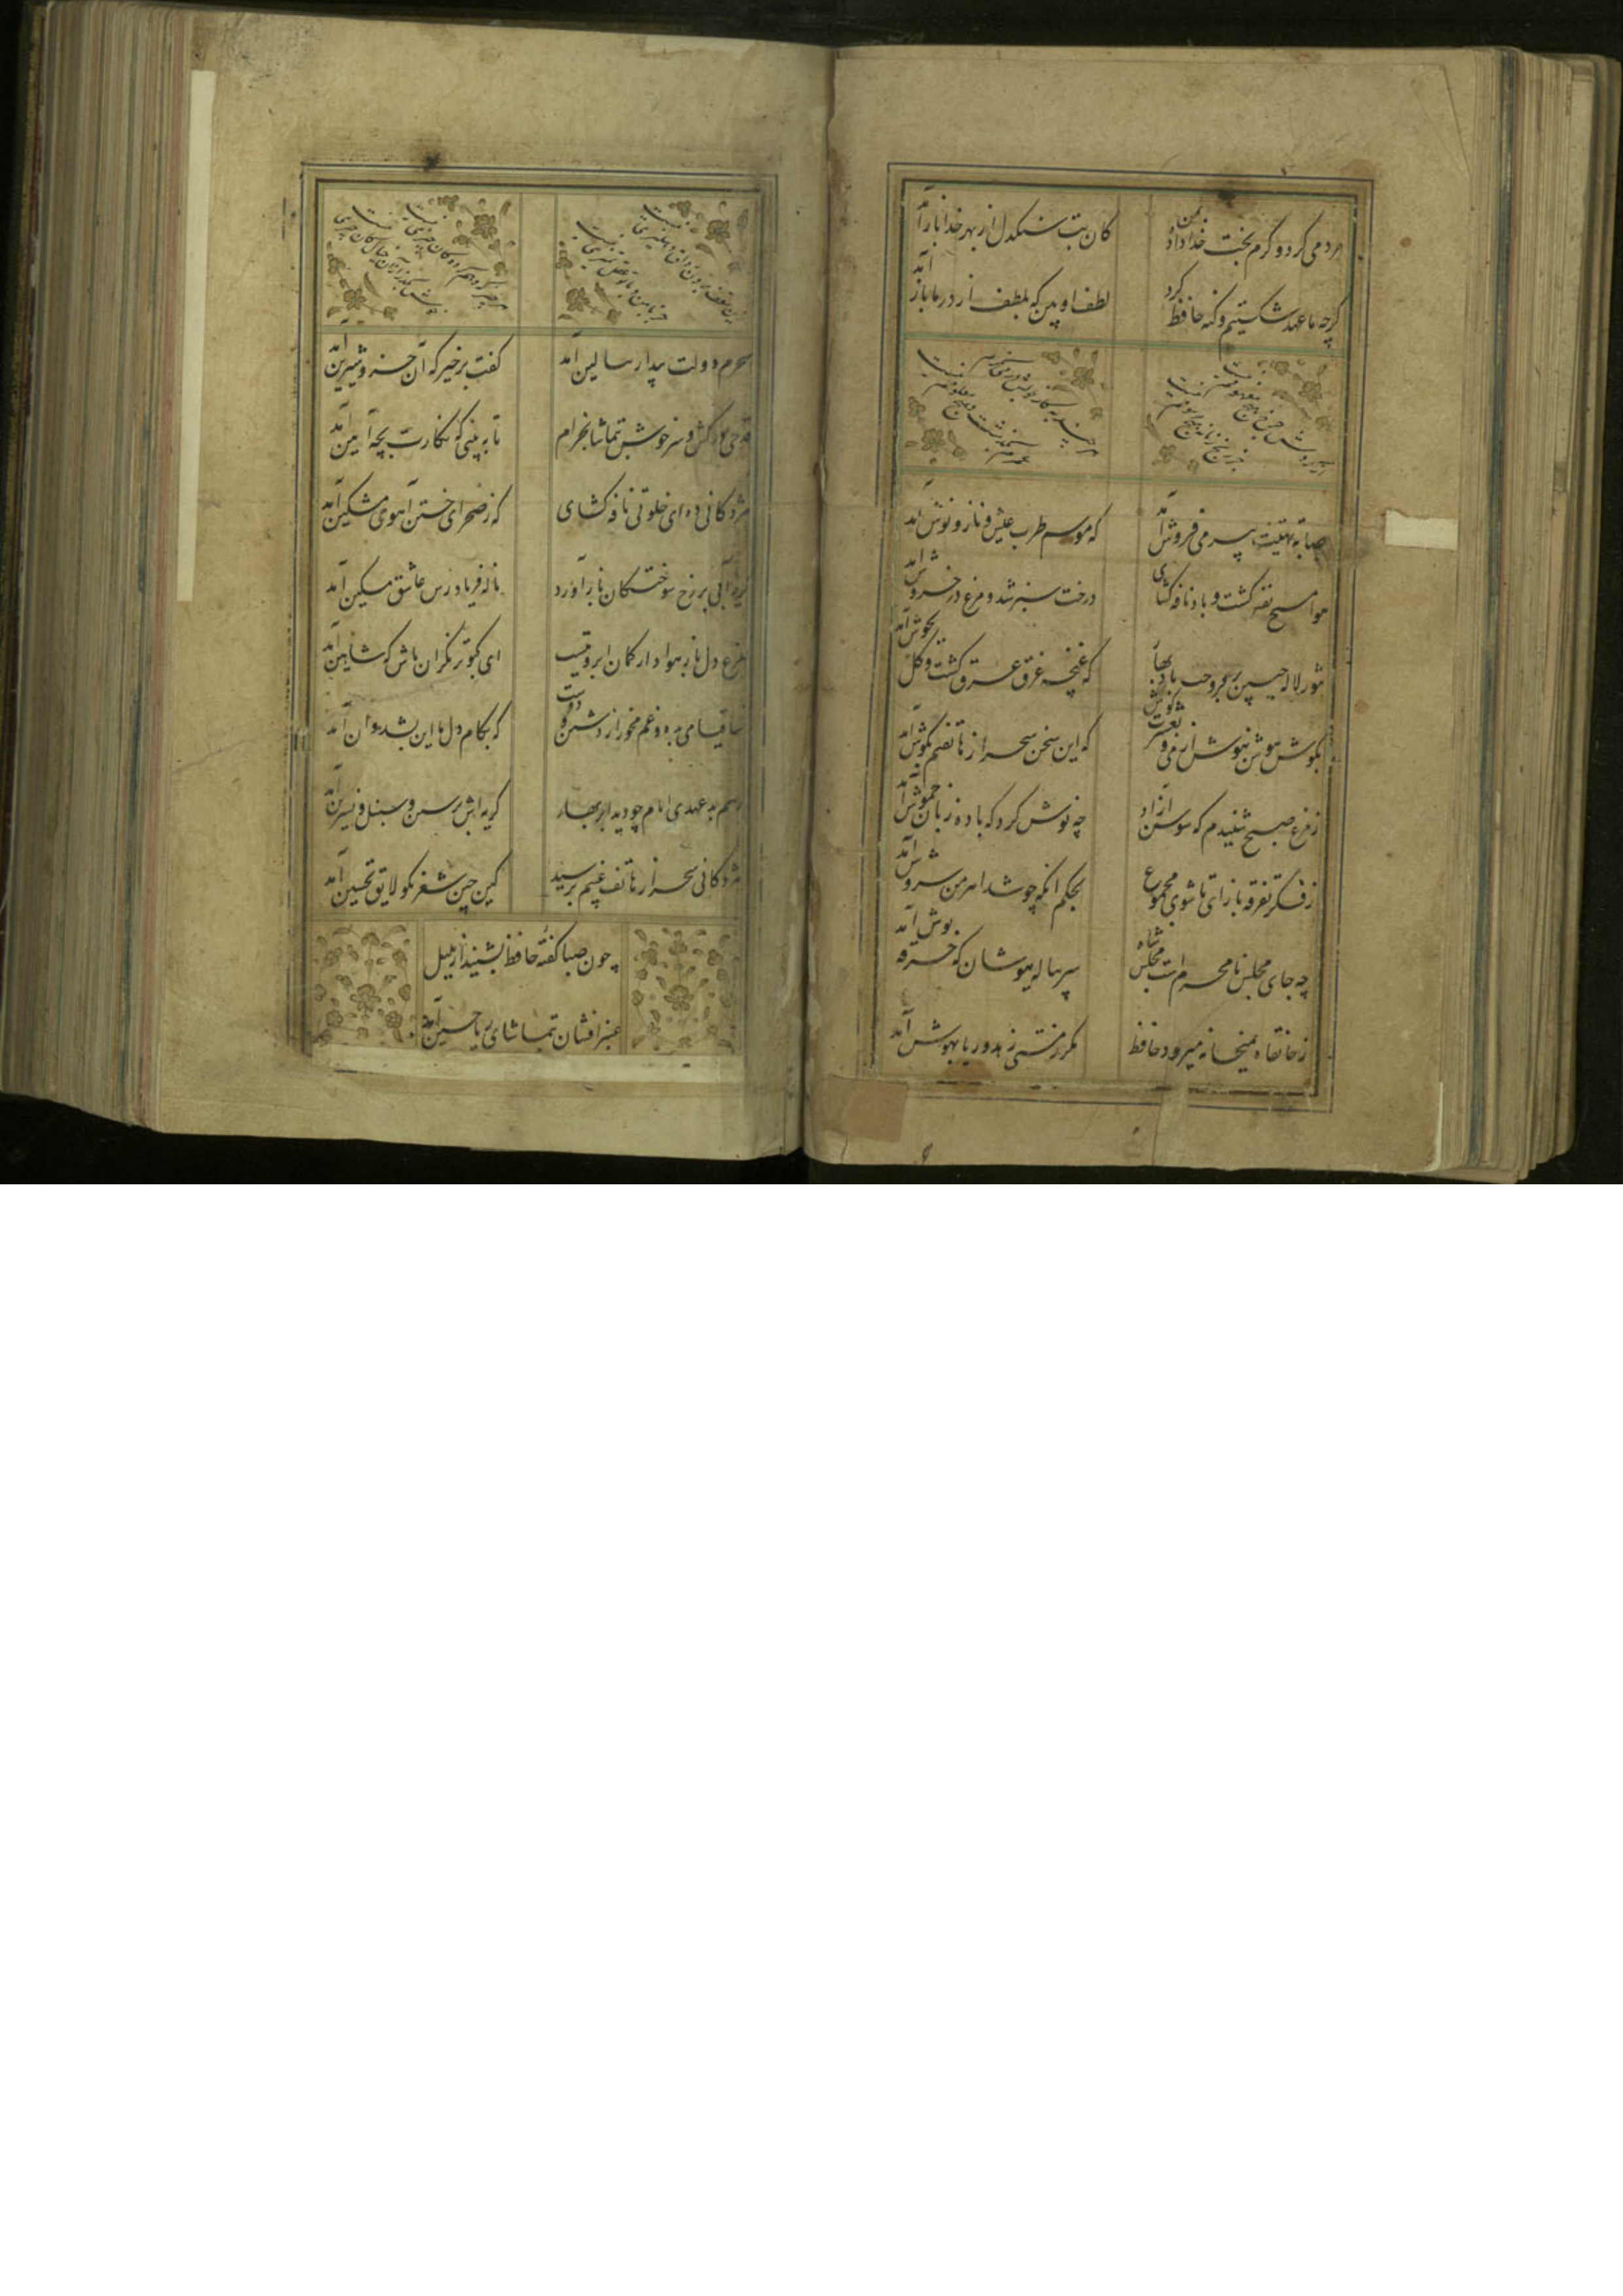 مردمی کرد و کرم بخت خداداد بمن
کان بت سنکدل از بهر خدا باز آمد
کرچه ما عهد شکستیم و کنه حافظ کرد
لطف او بین که بلطف از در ما باز آمد
صبا به تهنیت پیر می فروش آمد
که موسم طرب عیش و ناز و نوش آمد
هوا مسیح نفس کشت و باد نافه کشای
درخت سبز شد و مرغ در خروش آمد
تنور لاله چنین بر فروخت باد بهار
که غنچه غرق عرق کشت و کل بجوش آمد
بکوش هوش نیوش از من و بعشرت کوش
که این سخن سحر از هاتفم بکوش آمد
ز مرغ صبح شنیدم که سوسن آزاد
چه نوش کرد که با ده زبان خموش آمد
ز فکر تفرقه باز آی تا شوی مجموع
بحکم آنکه چو شد اهرمن سروش آمد
چه جای مجلس نامحرم است مجلس شاه
سر پیاله بپوشان که خرقه پوش آمد
ز خانقاه بمیخانه میرود حافظ
مکر ز مستی زهد و ریا بهوش آمد
سحرم دولت بیدار ببالین آمد
کفت برخیز که آن خسرو شیرین آمد
قدحی در کش و سرخوش بتماشا بخرام
تا به بینی که نکارت بچه آیین آمد
مژدکانی ده ای خلوتی نافه کشای
که ز صحرای ختن آهوی مشکین آمد
کریه آبی برخ سوختکان باز آورد
ناله فریاد رس عاشق مسکین آمد
مرغ دل باز هوادار کمان ابروئیست
ای کبوتر نکران باش که شاهین آمد
ساقیا می بده و غم مخور از دشمن و دوست
که بکام دل ما این بشد و آن آمد
رسم بد عهدی ایام چو دید ابر بهار
کریه اش بر سمن و سنبل و نسرین آمد
مژدکانی سحر از هاتف غیبم برسید
کین چنین شعر نکو لایق تحسین آمد
چون صبا کفته حافظ بشنید از بلبل
عنبر افشان بتماشای ریاحین آمد